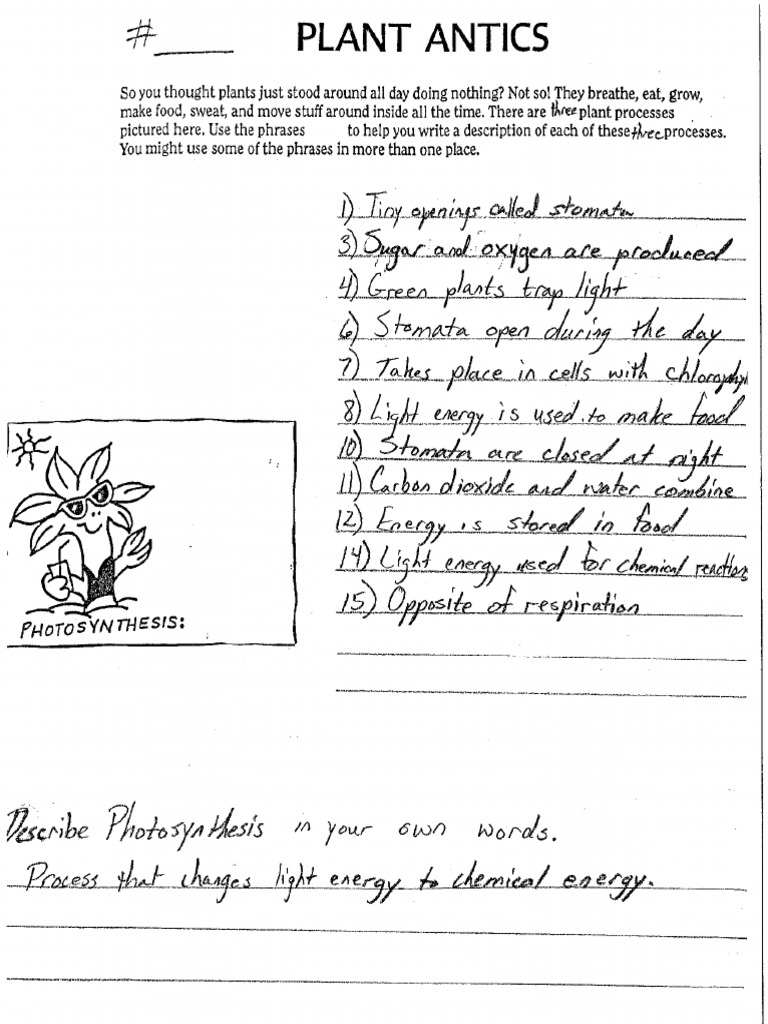 # ____ PLANT ANTICS
So you thought plants just stood around all day doing nothing? Not so! They breathe, eat, grow,
make food, sweat, and move stuff around inside all the time. There are three plant processes
pictured here. Use the phrases to help you write a description of each of these three processes.
You might use some of the phrases in more than one place.
1) Tiny openings called stomata
3) Sugar and oxygen are produced
4) Green plants trap light
6) Stomata open during the day
7) Takes place in cells with chlorophyl
8) Light energy is used to make food
10) Stomata are closed at night
11) Carbon dioxide and water combine
12) Energy is stored in food
14) Light energy used for chemical reactions
15) Opposite of respiration
PHOTOSYNTHESIS:
Describe Photosynthesis in your own words.
Process that changes light energy to chemical energy.